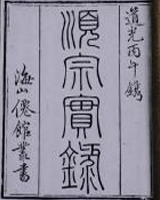 道光丙午鐫
順宗實錄
海山僊館叢書